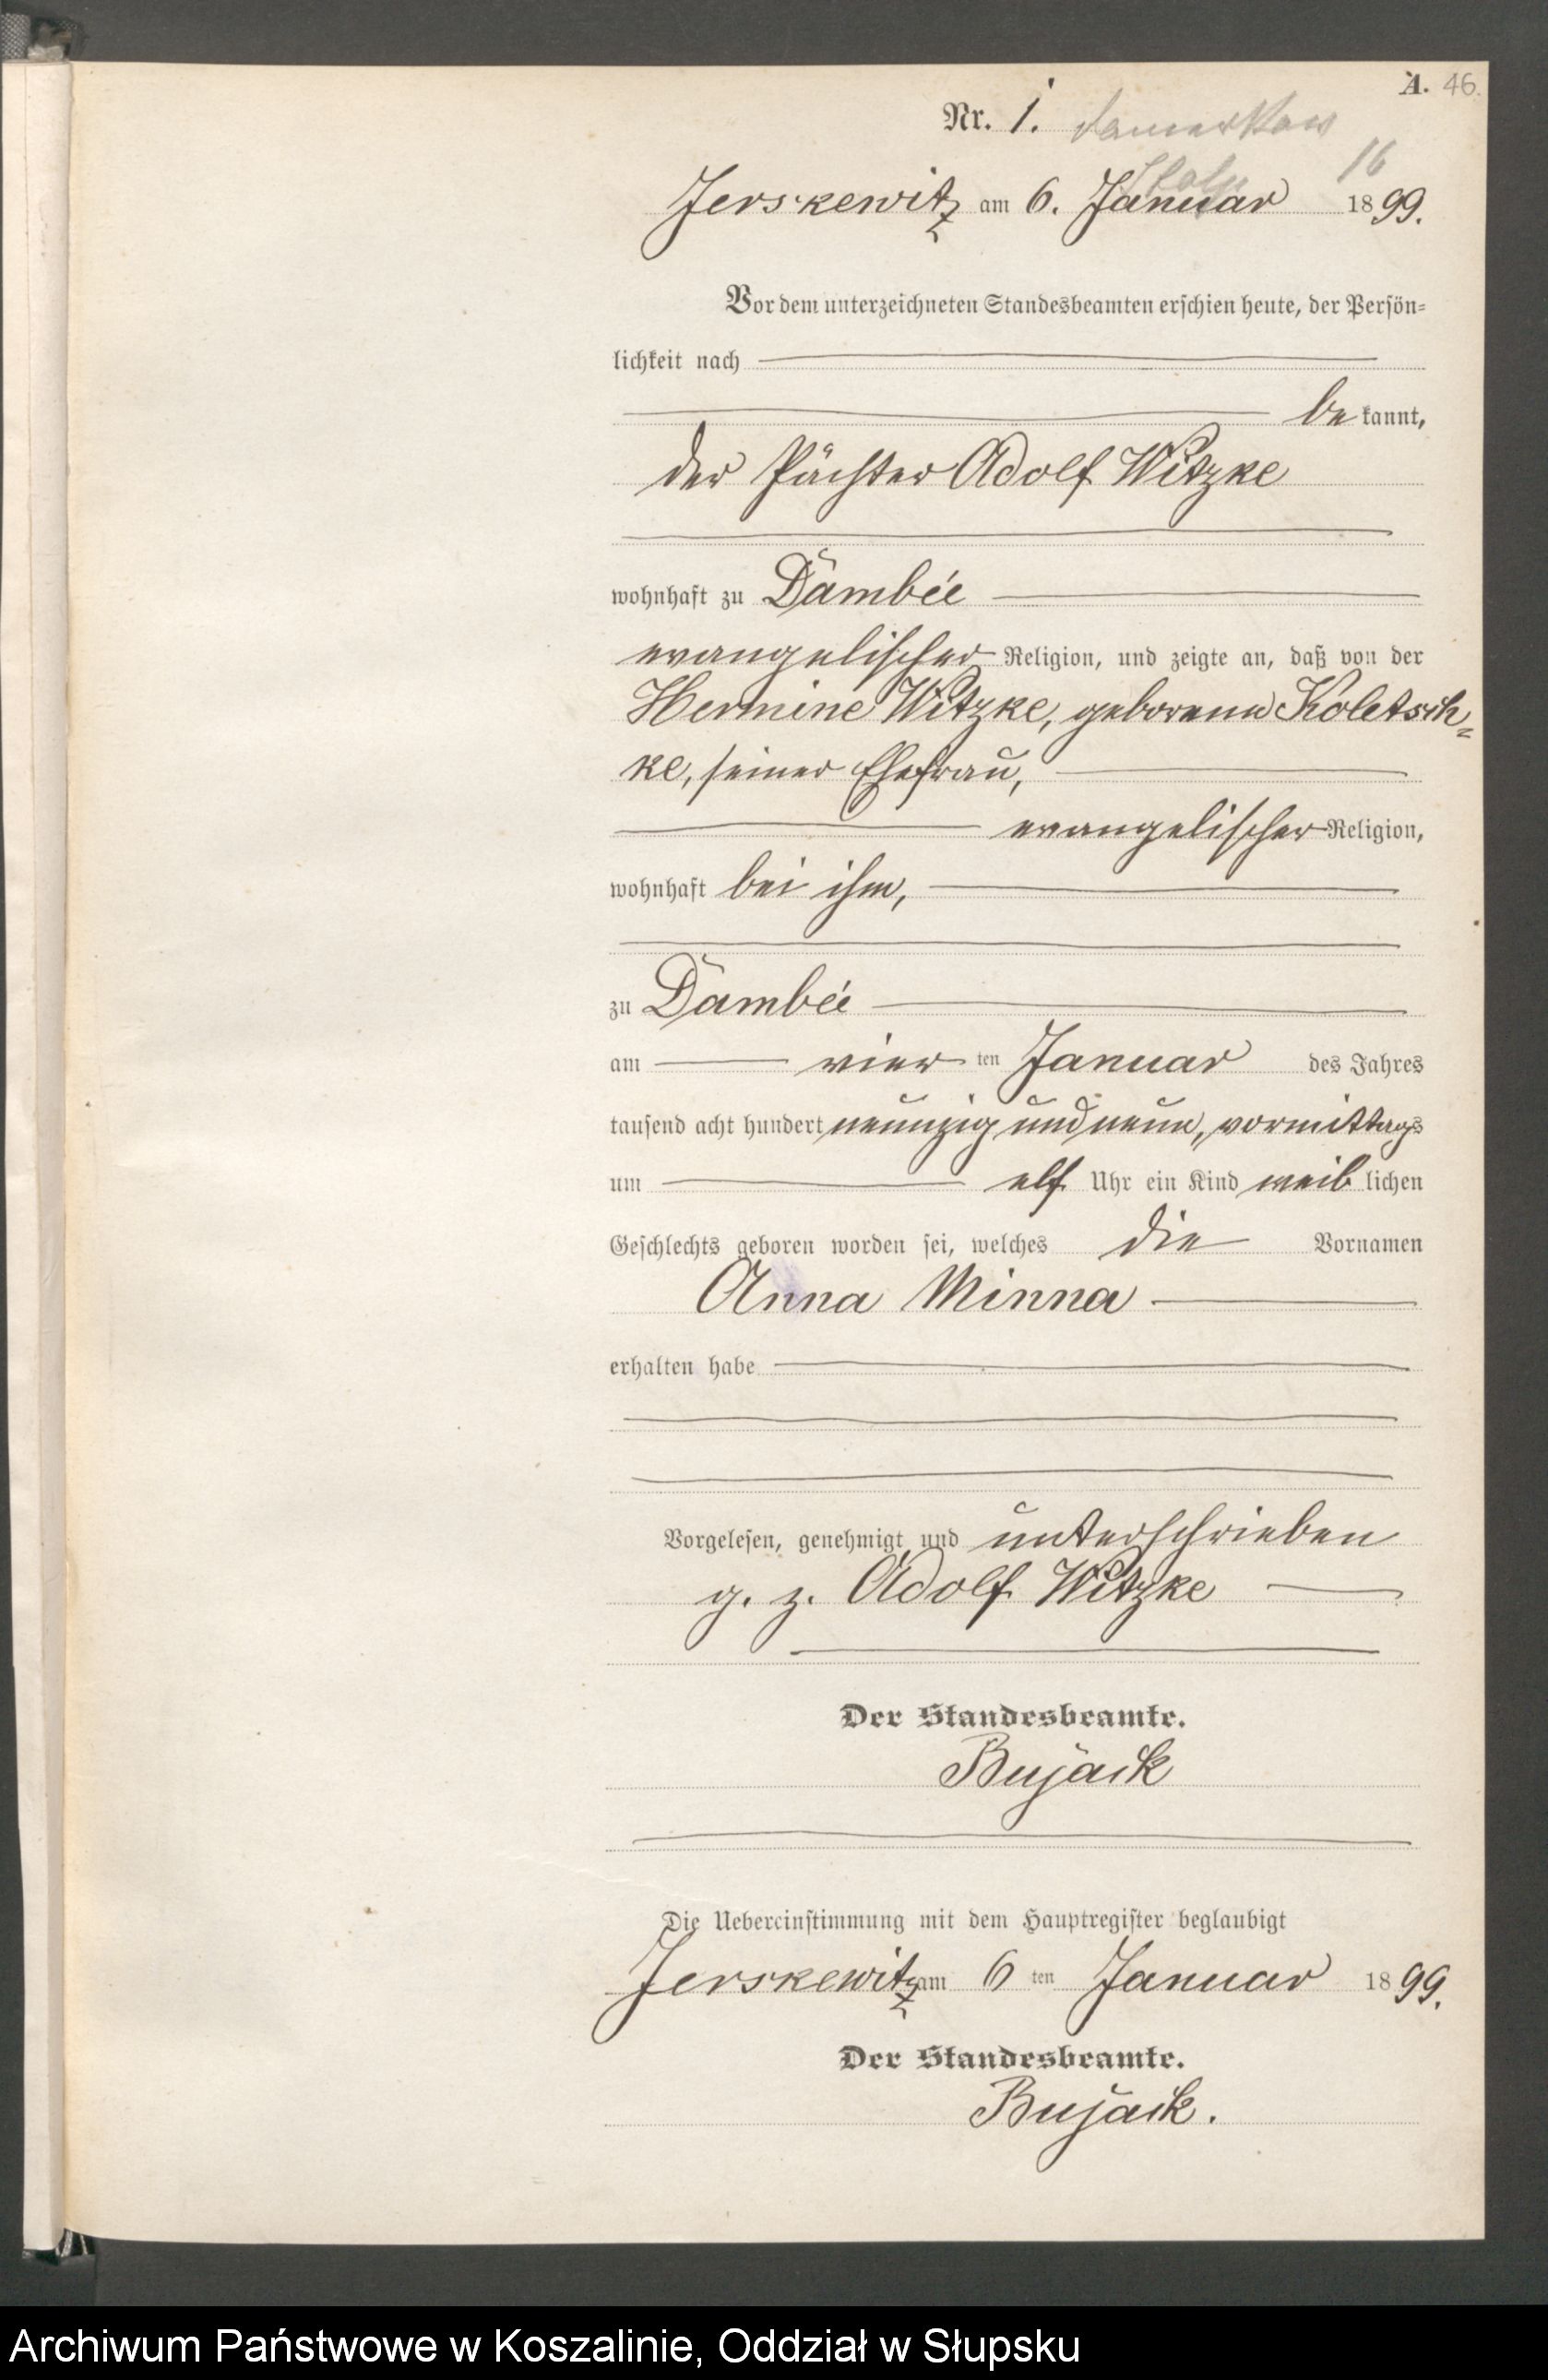 A. 46.
Nr. 1. Damerkow
16
Jerskewitz am 6. Januar 1899.
Vor dem unterzeichneten Standesbeamten erschien heute, der Persön=
lichkeit nach
be kannt,
der Pächter Adolf Witzke
wohnhaft zu Dambée
evangelischer Religion, und zeigte an, daß von der
Hermine Witzke, geborene Koletsch=
ke, seiner Ehefrau,
evangelischer Religion,
wohnhaft bei ihm,
zu Dambée
am vier ten Januar des Jahres
tausend acht hundert neunzig und neun, vormittags
um elf Uhr ein Kind weib lichen
Geschlechts geboren worden sei, welches die Vornamen
Anna Minna
erhalten habe
Vorgelesen, genehmigt und unterschrieben
g. z. Adolf Witzke
Der Standesbeamte.
Bujack
Die Uebereinstimmung mit dem Hauptregister beglaubigt
Jerskewitz am 6 ten Januar 1899.
Der Standesbeamte.
Bujack.
Archiwum Państwowe w Koszalinie, Oddział w Słupsku